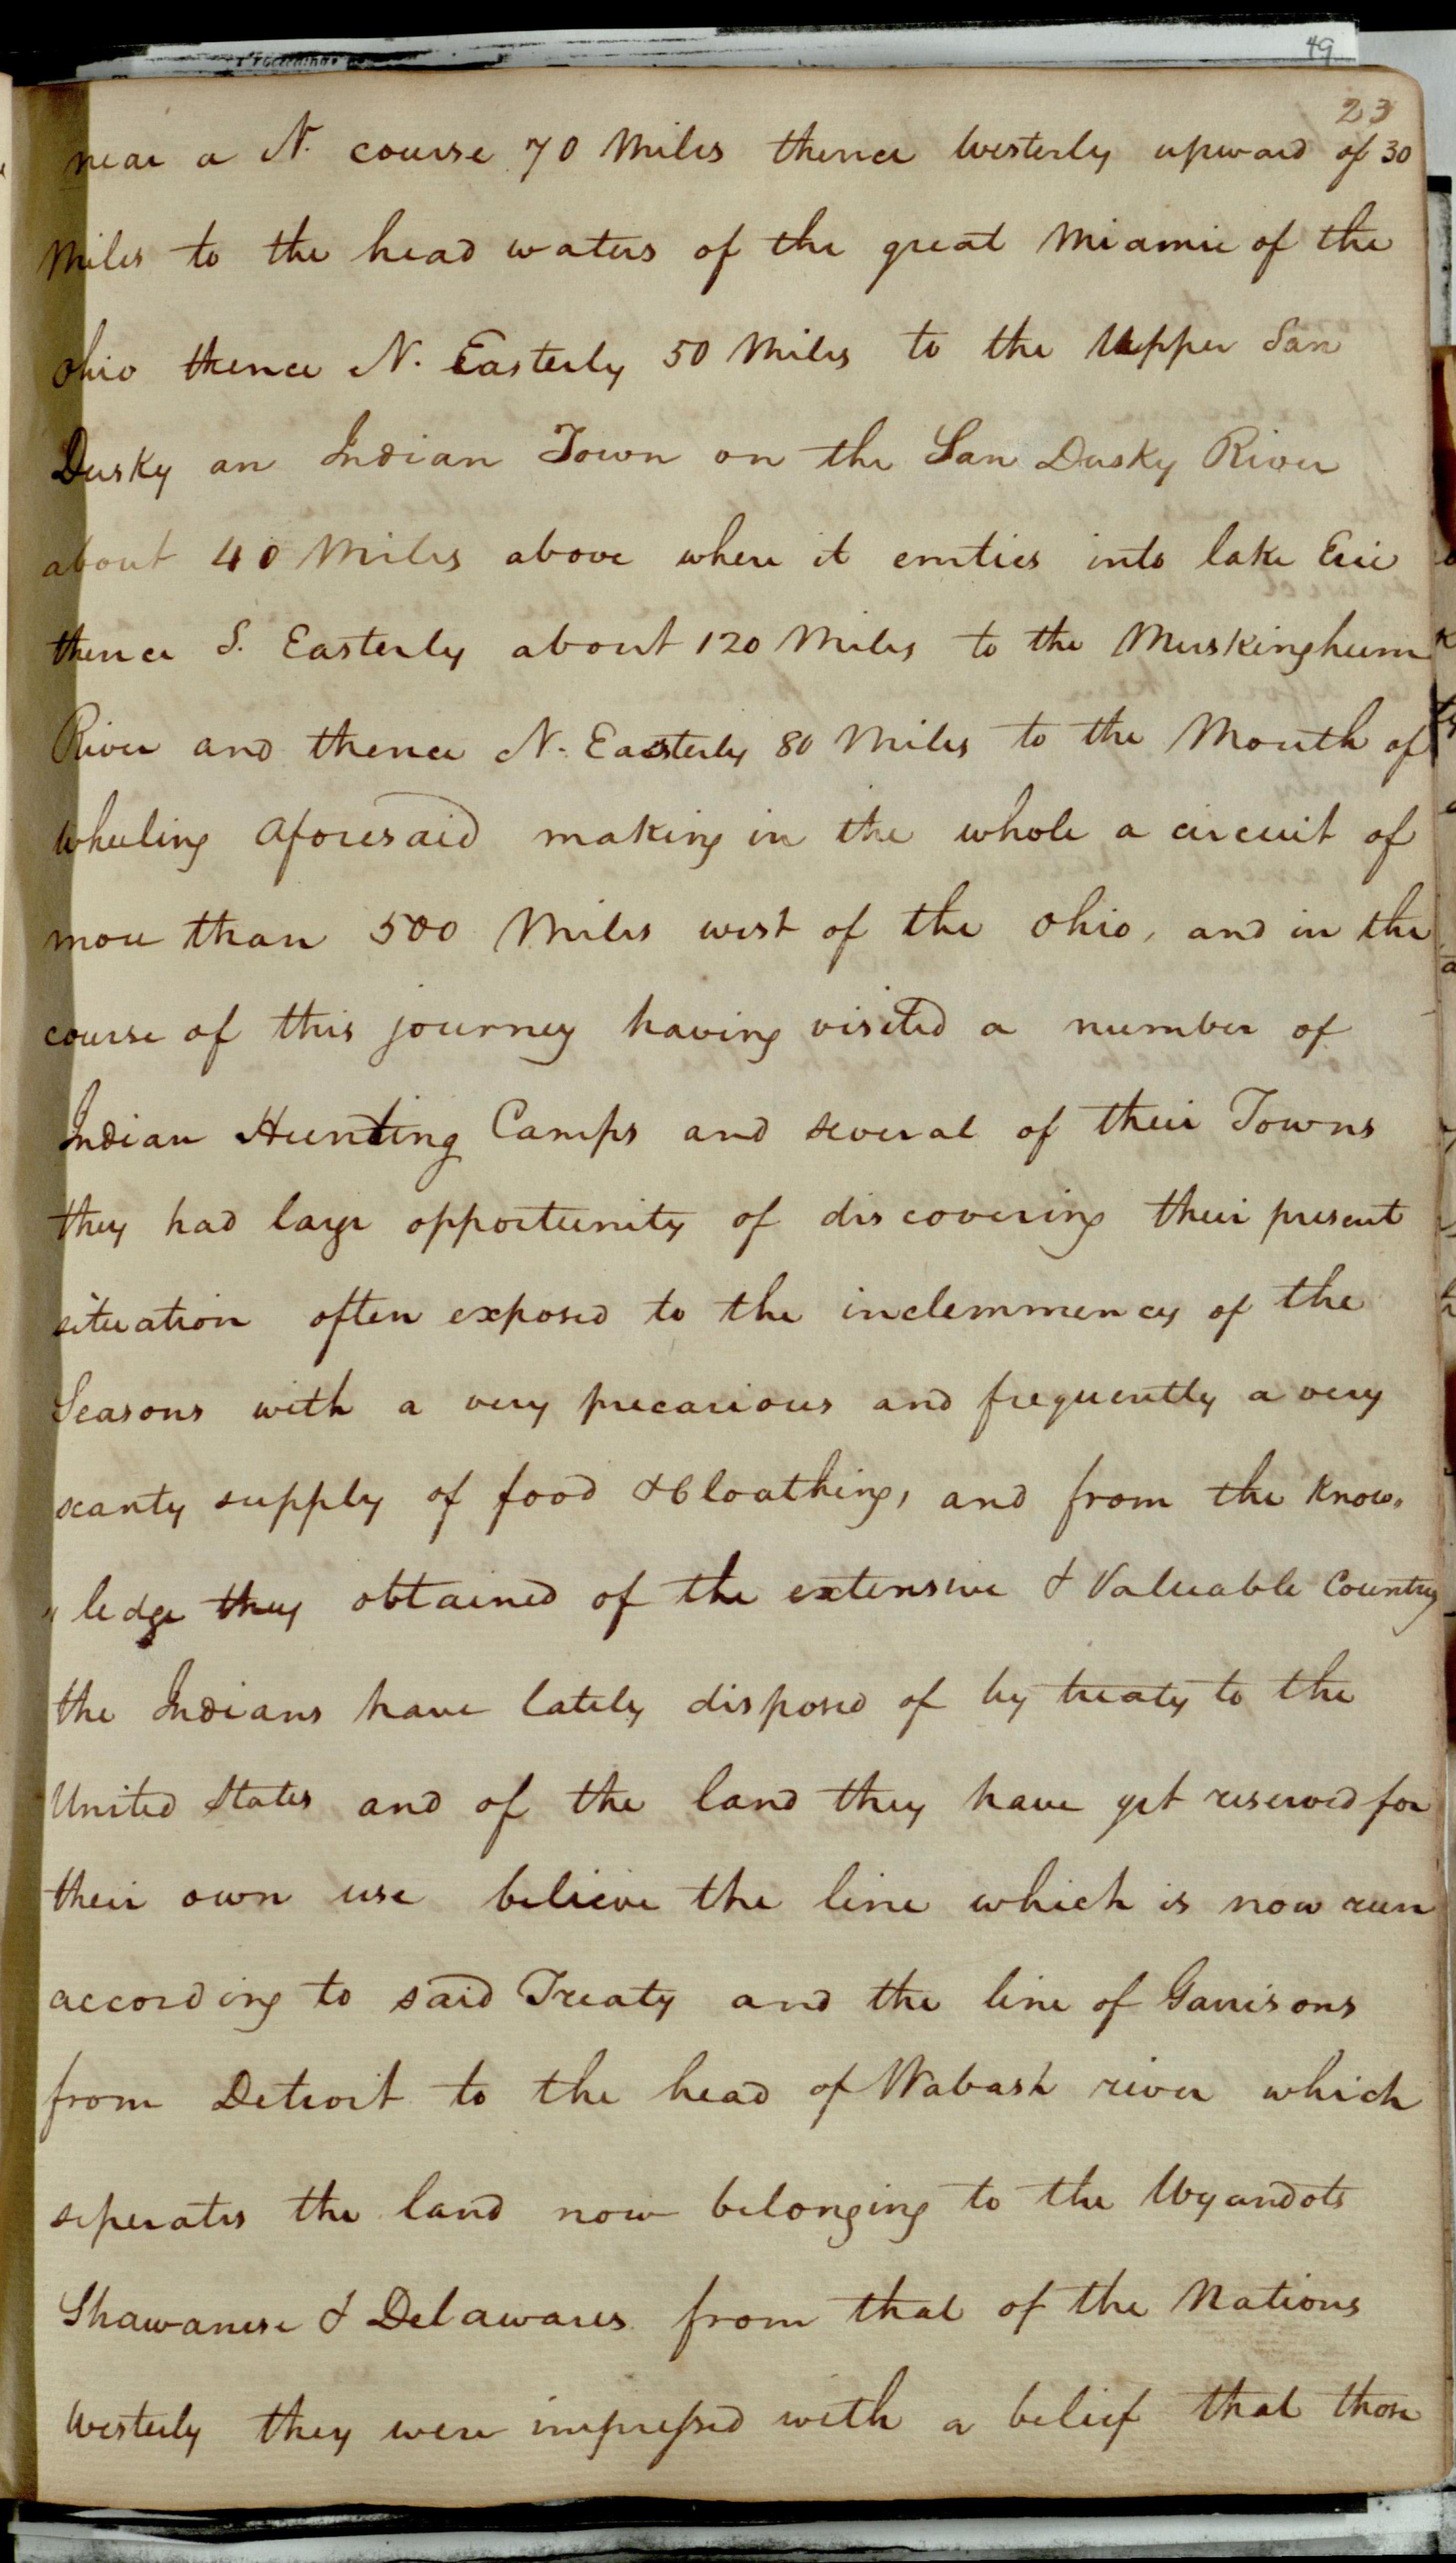 49
23
near a N. course 70 Miles thence Westerly upward of 30
Miles to the head waters of the great Miamie of the
Ohio thence N. Easterly 50 Miles to the Upper San
Dusky an Indian Town on the San Dusky River
about 40 Miles above where it emties into lake Erie
thence S. Easterly about 120 Miles to the Muskinghum
River and thence N. Easterly 80 Miles to the Mouth of
Wheeling aforesaid making in the whole a circuit of
more than 500 Miles west of the Ohio, and in the
course of this journey having visited a number of
Indian Hunting Camps and several of their Towns
they had large opportunity of discovering their present
situation often exposed to the inclemmency of the
Seasons with a very precarious and frequently a very
scanty supply of food & Cloathing, and from the Know„
„ledge they obtained of the extensive & Valuable Country
the Indians have lately disposed of by treaty to the
United States and of the land they have yet reserved for
their own use believe the line which is now run
according to said Treaty and the line of Garrisons
from Detroit to the head of Wabash river which
seperates the land now belonging to the Wyandots
Shawanese & Delawares from that of the Nations
Westerly they were impressed with a belief that those